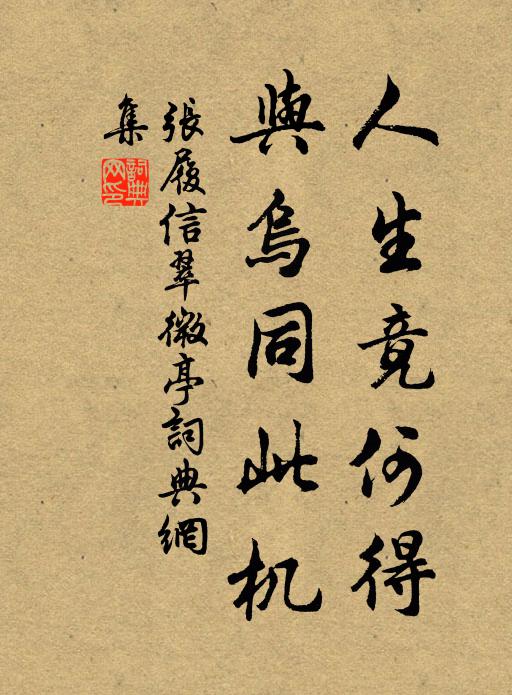 人生竟何得
與烏同此机
張履信翠微亭詞典網
集
詞典網印